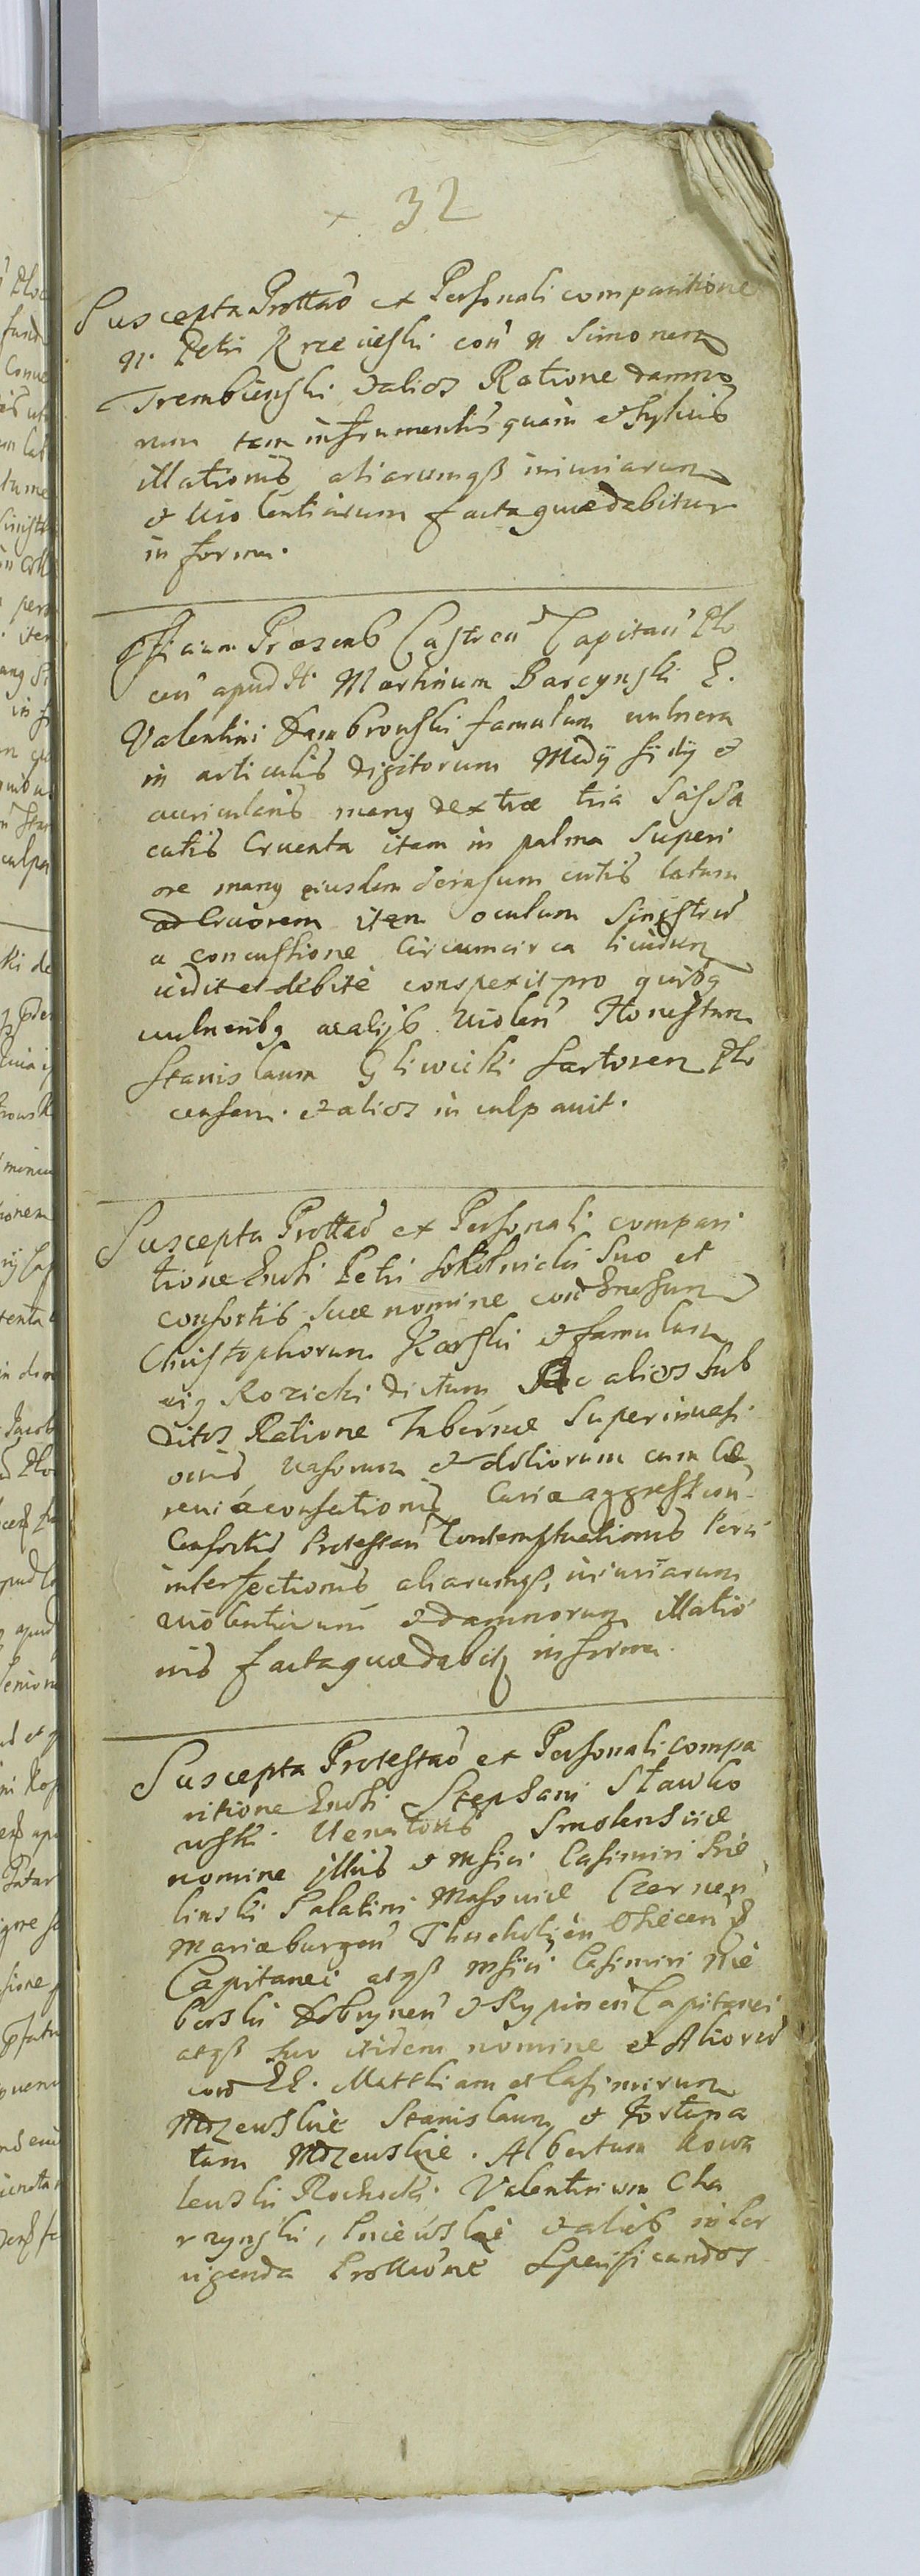 32
Suscepta Prottaõ ex Personali comparitione
N. Petri Krzewski con̄ N Simonem
Trembienski et alios Ratione damno
rum tam in frumentis quam et sylvis
illationis aliarumqß iniuriarum
et violentiarum facta quae dabitur
in forma.
Officium Praesens Castren̄ Capitan̄ Plo
cen̄ apud H. Martinum Barcynski E.
Valentini Dambrowski famulum vulnera
in articulis digitorum Medÿ et
auricularis manus dextrae tria Saissa
cutis Cruenta item in palma Superi
ore manus eiusdem derasum cutis latum
ad Cruorem item oculum Sinistrũ
a concussione Circumcirca lividum
vidit et debite conspexit pro quibus
vulneribus ac alijs violen̄ Honestum
Stanislaum Gliwicki Sartorem Plo
censem. et alios inculpavit.
Suscepta Prottaõ ex Personali compari
tione Petri Sokolnicki Suo et
consortis Suae nomine con̄
Christophorum Karski et famulum
eius Rozicki dictum ac alios Sub
ditos Ratione Tabernae Superinvasi
onis, vasorum et doliorum cum Ce
revisia consectionis
Consortis Protestan̄ Contemptuationis Porci
interfectionis aliarumqß, iniuriarum
violentiarum et damnorum illatio
nis facta quae dabitꝫ in forma.
Suscepta Protestaõ ex Personali compa
ritione Stephani Sławko
wski Venatoris Smolensciae
nomine Illris et Mfici Casimiri Bie
linski Palatini Masoviae Czernen̄
Mariaeburgen̄ Thucholien Osiecen̄
Capitanei atqß Mfici Casimiri Nie
borski Dobrynen̄ et Rypinen̄ Capitanei
atqß suo itidem nomine et Aliorũ
con̄ EE. Matthiam et Casimirum
Mdzewskie Stanislaum et
tam Mdzewskie. Albertum Kowa
lewski Rochocki. Valentinum Cha
rzynski, et aliis in Cor
rigenda Prottaõne Specificandos